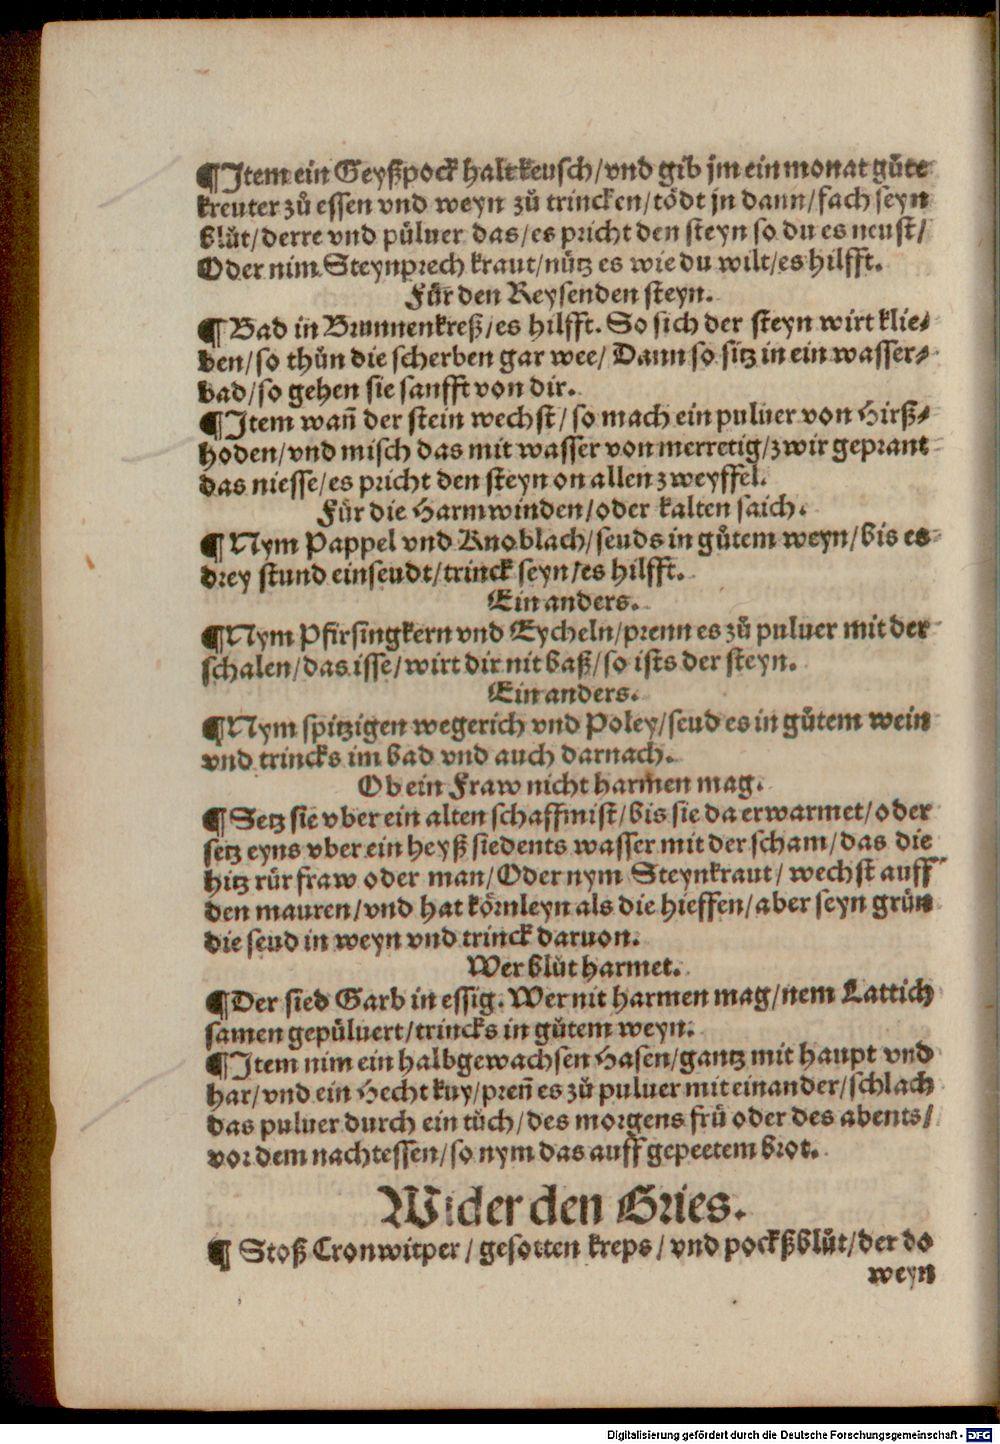 ¶Item ein Geyßpock halt keusch/vnd gib jm ein monat gůte
kreuter zů essen vnd weyn zů trincken/tödt jn dann/fach seyn
blůt/derre vnd půluer das/es pricht den steyn so du es neust/
Oder nim Steynprech kraut/nütz es wie du wilt/es hilfft.
Für den Reysenden steyn.
¶ Bad in Brunnenkreß/es hilfft. So sich der steyn wirt klie⸗
ben/so thůn die scherben gar wee/ Dann so sitz in ein wasser⸗
bad/so gehen sie sanfft von dir.
¶Item wañ der stein wechst/so mach ein puluer von Hirß⸗
hoden/vnd misch das mit wasser von merretig/zwir geprant
das niesse/es pricht den steyn on allen zweyffel.
Für die Harmwinden/oder kalten saich.
¶ Nym Pappel vnd Knoblach/seuds in gůtem weyn/bis es
drey stund einseudt/trinck seyn/es hilfft.
Ein anders.
¶Nym Pfirsingkern vnd Eycheln/prenn es zů puluer mit der
schalen/das isse/wirt dir nit baß/so ists der steyn.
Ein anders.
¶Nym spitzigen wegerich vnd Poley/seud es in gůtem wein
vnd trincks im bad vnd auch darnach.
Ob ein Fraw nicht harmen mag.
¶ Setz sie vber ein alten schaffmist/bis sie da erwarmet/oder
setz eyns vber ein heyß siedents wasser mit der scham/das die
hitz rür fraw oder man/Oder nym Steynkraut/ wechst auff
den mauren/vnd hat körnleyn als die hieffen/aber seyn grün
die seud in weyn vnd trinck daruon.
Wer blůt harmet.
¶Der sied Garb in essig. Wer nit harmen mag/nem Lattich
samen gepůluert/trincks in gůtem weyn.
¶Item nim ein halbgewachsen Hasen/gantz mit haupt vnd
har/vnd ein Hecht kuy/preñ es zů puluer mit einander/schlach
das puluer durch ein tůch/des morgens frů oder des abents/
vor dem nachtessen/so nym das auff gepeetem brot.
Wider den Gries.
¶ Stoß Cronwitper/gesotten kreps/vnd pockßblůt/der do
weyn
Digitalisierung gefördert durch die Deutsche Forschungsgemeinschaft - DFG